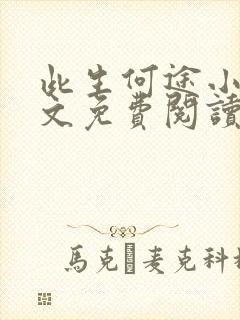 此生何途小
文免费阅讀
馬克·麦克科